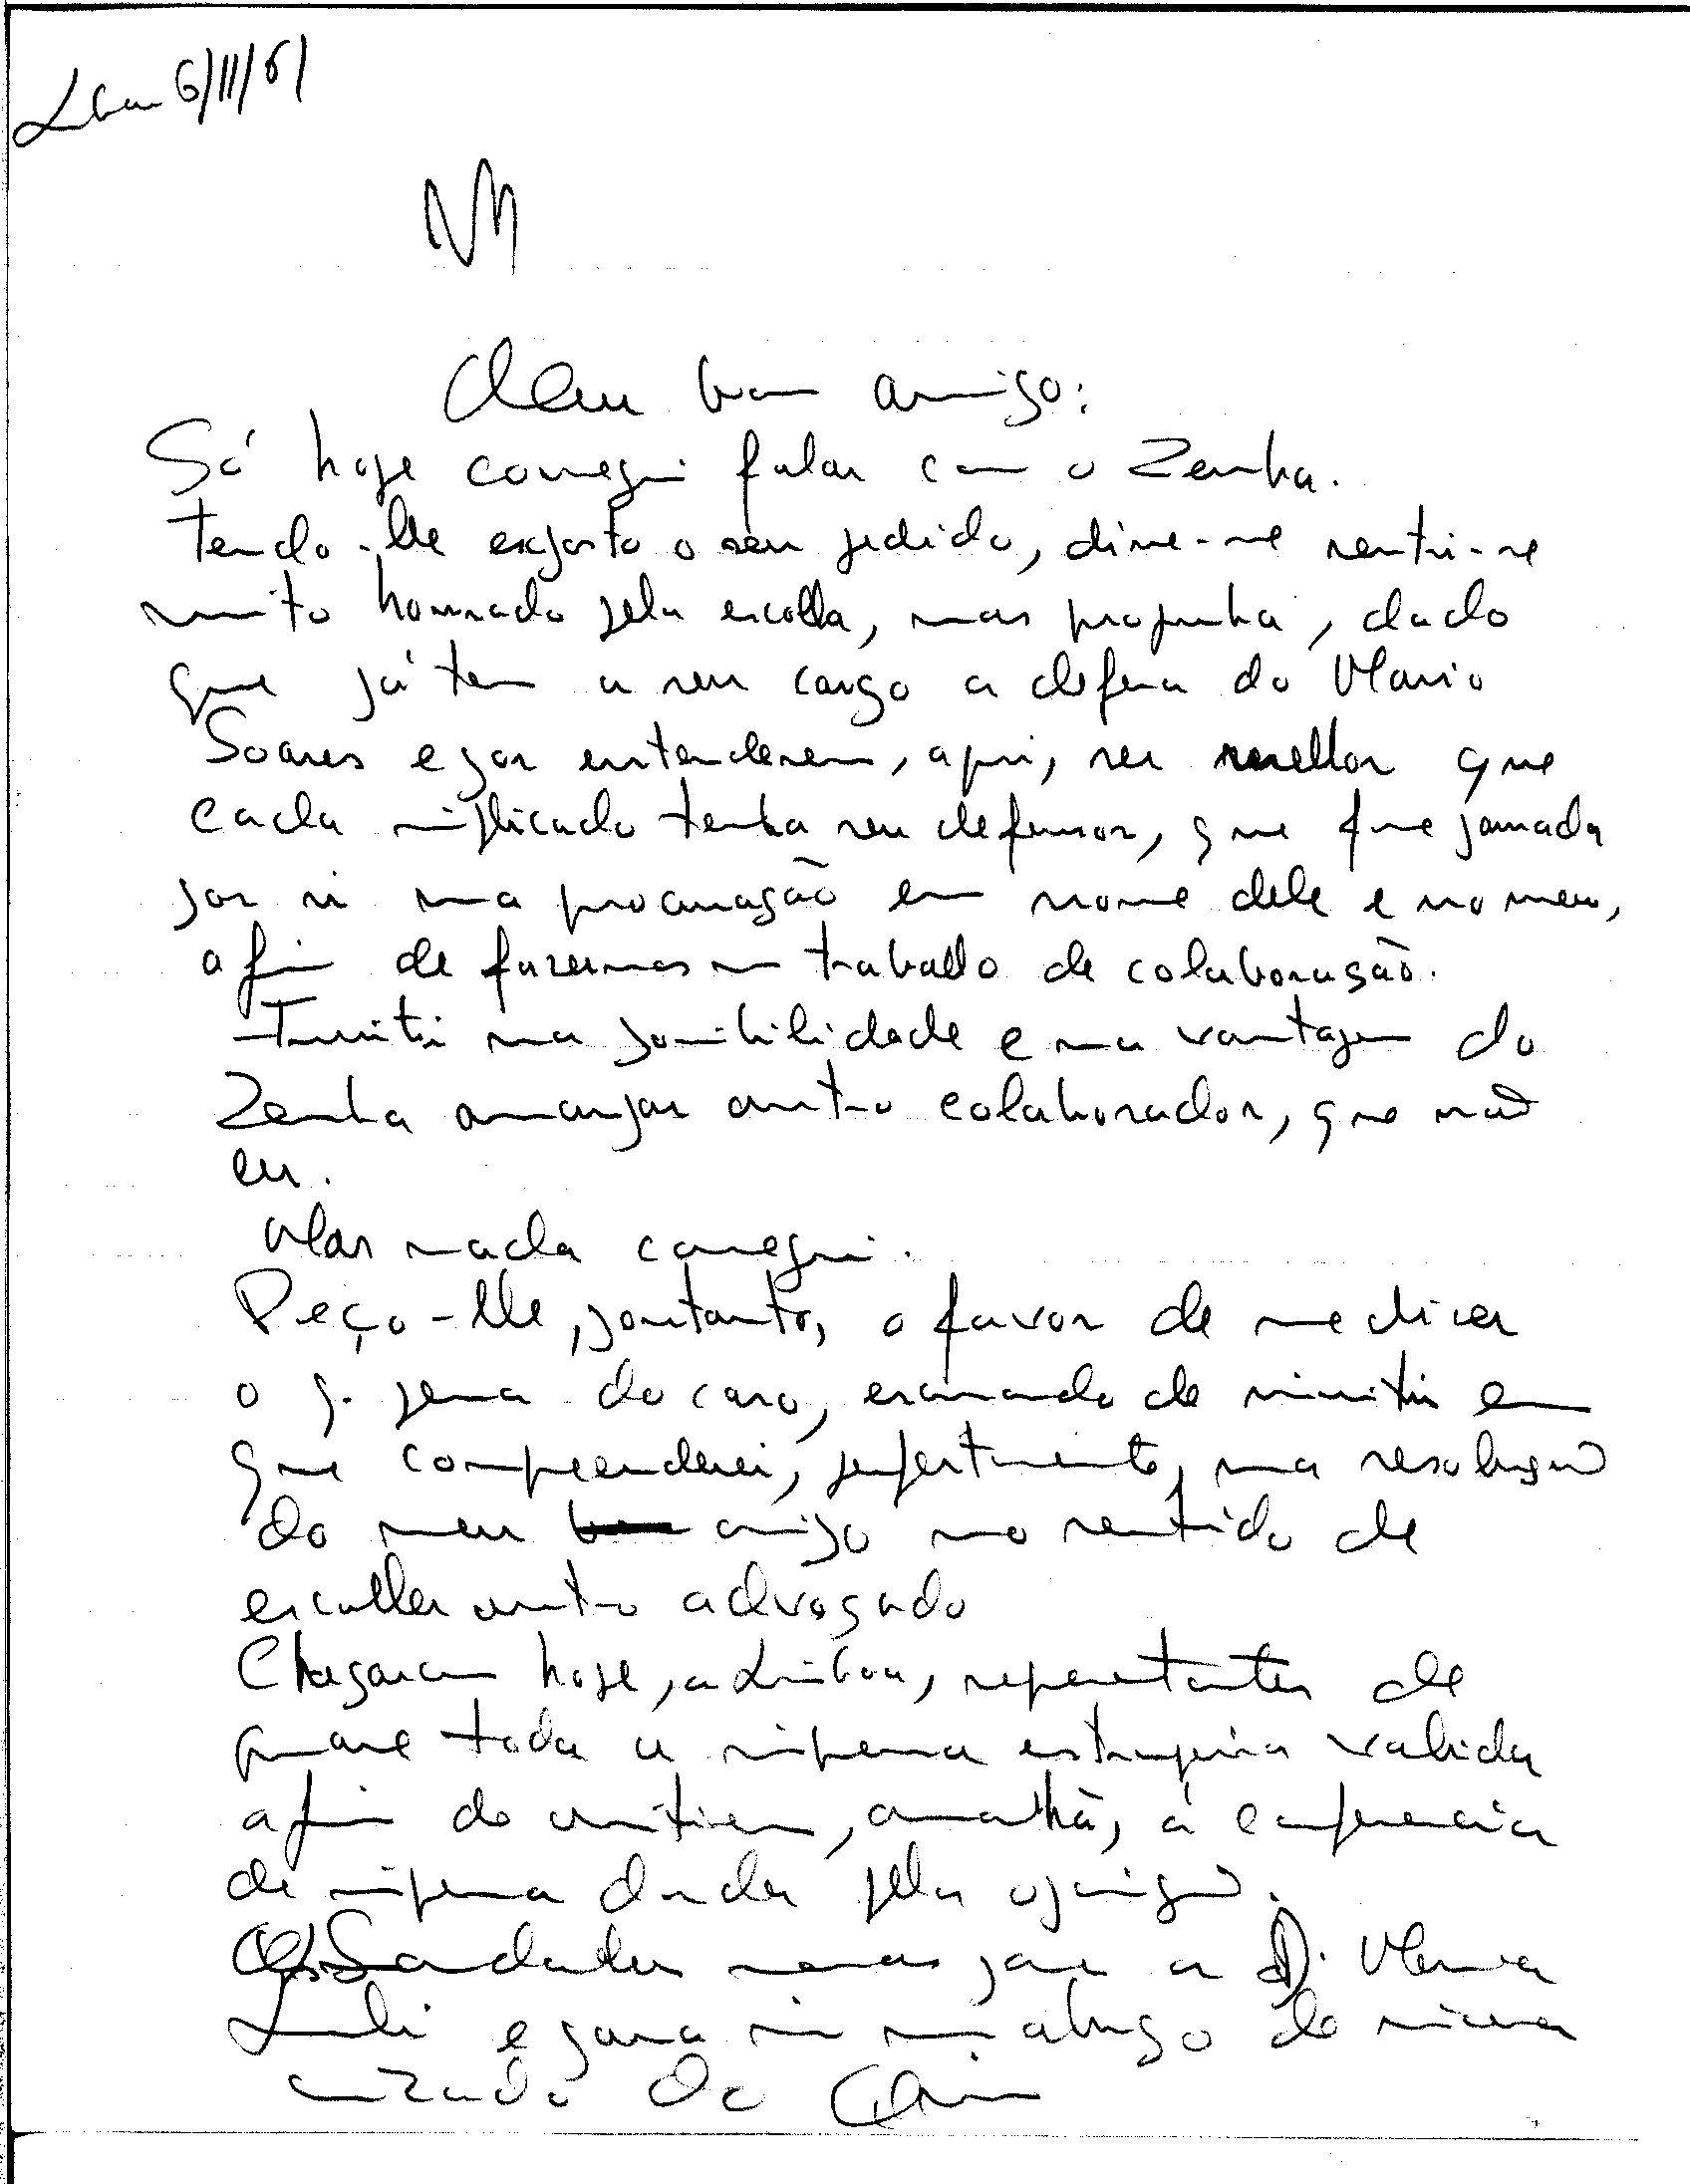 Lxa 6/II/61
Meu bom amigo:
Só hoje consegui falar com o Zenha.
Tendo-lhe exposto o seu pedido, disse-me sentir-se
muito honrado pela escolha, mas propunha, dado
que já tem a seu cargo a defesa do Mario
Soares e por entenderem, aqui, ser melhor que
cada implicado tenha seu defensor, que fosse passada
por si uma procuração em nome dele e no meu,
a fim de fazermos um trabalho de colaboração.
Insisti na possibilidade e na vantagem do
Zenha arranjar outro colaborador, que não
eu.
Mas nada consegui.
Peço-lhe, portanto, o favor de me dizer
o q. pensa do caso, escusando de insistir em
que compreenderei, perfeitamente, uma resolução
do meu amigo no sentido de
escolher outro advogado
Chegaram hoje, a Lisboa, representantes de
quase toda a imprensa estrangeira valida
a fim de assistirem, amanhã, á conferencia
de imprensa dada pela oposição.
Saudades nossas para a D. Maria
e para si um abraço de sincera
amizade do